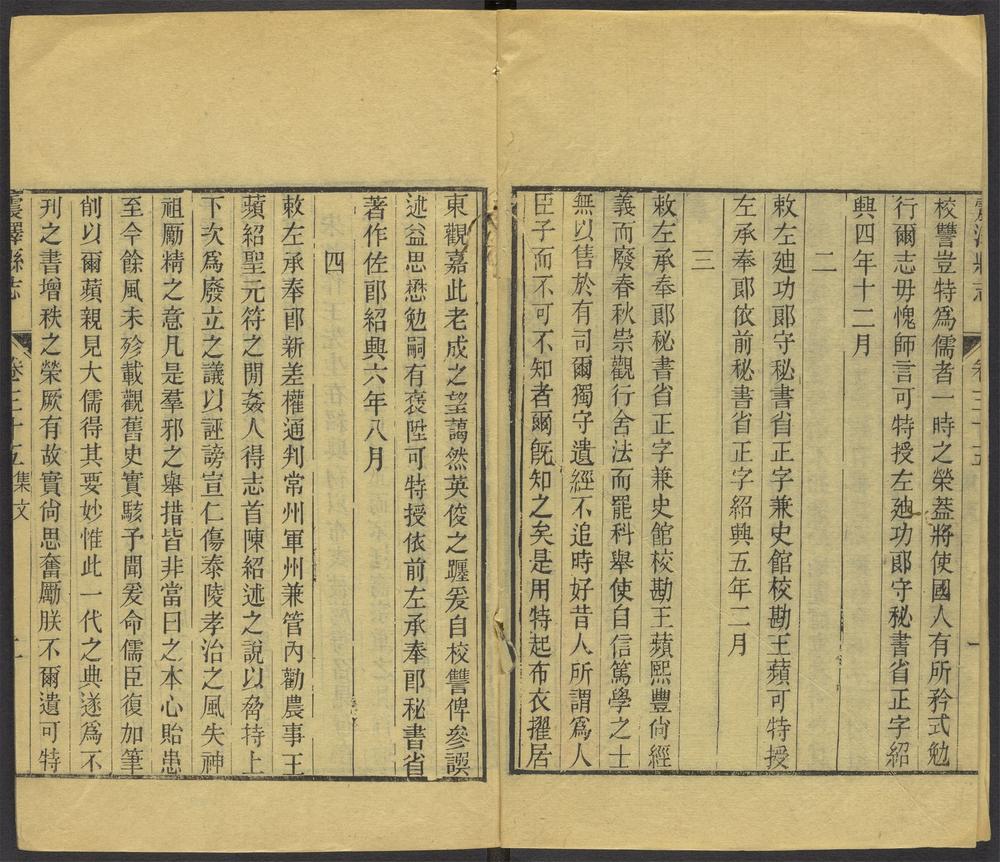 震澤縣志
卷三十五
一
校讐豈特爲儒者一時之榮蓋將使國人有所矜式勉
行爾志毋愧師言可特授左廸功郞守秘書省正字紹
興四年十二月
二
敕左廸功郞守秘書省正字兼史館校勘王蘋可特授
左承奉郞依前秘書省正字紹興五年二月
三
敕左承奉郞秘書省正字兼史館校勘王蘋熙豐尙經
義而廢春秋崇觀行舍法而罷科舉使自信篤學之士
無以售於有司爾獨守遺經不追時好昔人所謂爲人
臣子而不可不知者爾旣知之矣是用特起布衣擢居
東觀嘉此老成之望藹然英俊之躔爰自校讐俾參譔
述益思懋勉嗣有褒陞可特授依前左承奉郞秘書省
著作佐郞紹興六年八月
四
敕左承奉郞新差權通判常州軍州兼管內勸農事王
蘋紹聖元符之閒姦人得志首陳紹述之說以脅持上
下次爲廢立之議以誣謗宣仁傷泰陵孝治之風失神
祖厲精之意凡是羣邪之舉措皆非當日之本心貽患
至今餘風未殄載觀舊史實駭予聞爰命儒臣復加筆
削以爾蘋親見大儒得其要妙惟此一代之典遂爲不
刋之書增秩之榮厥有故實尙思奮厲朕不爾遺可特
震澤縣志
卷三十五
集文
二